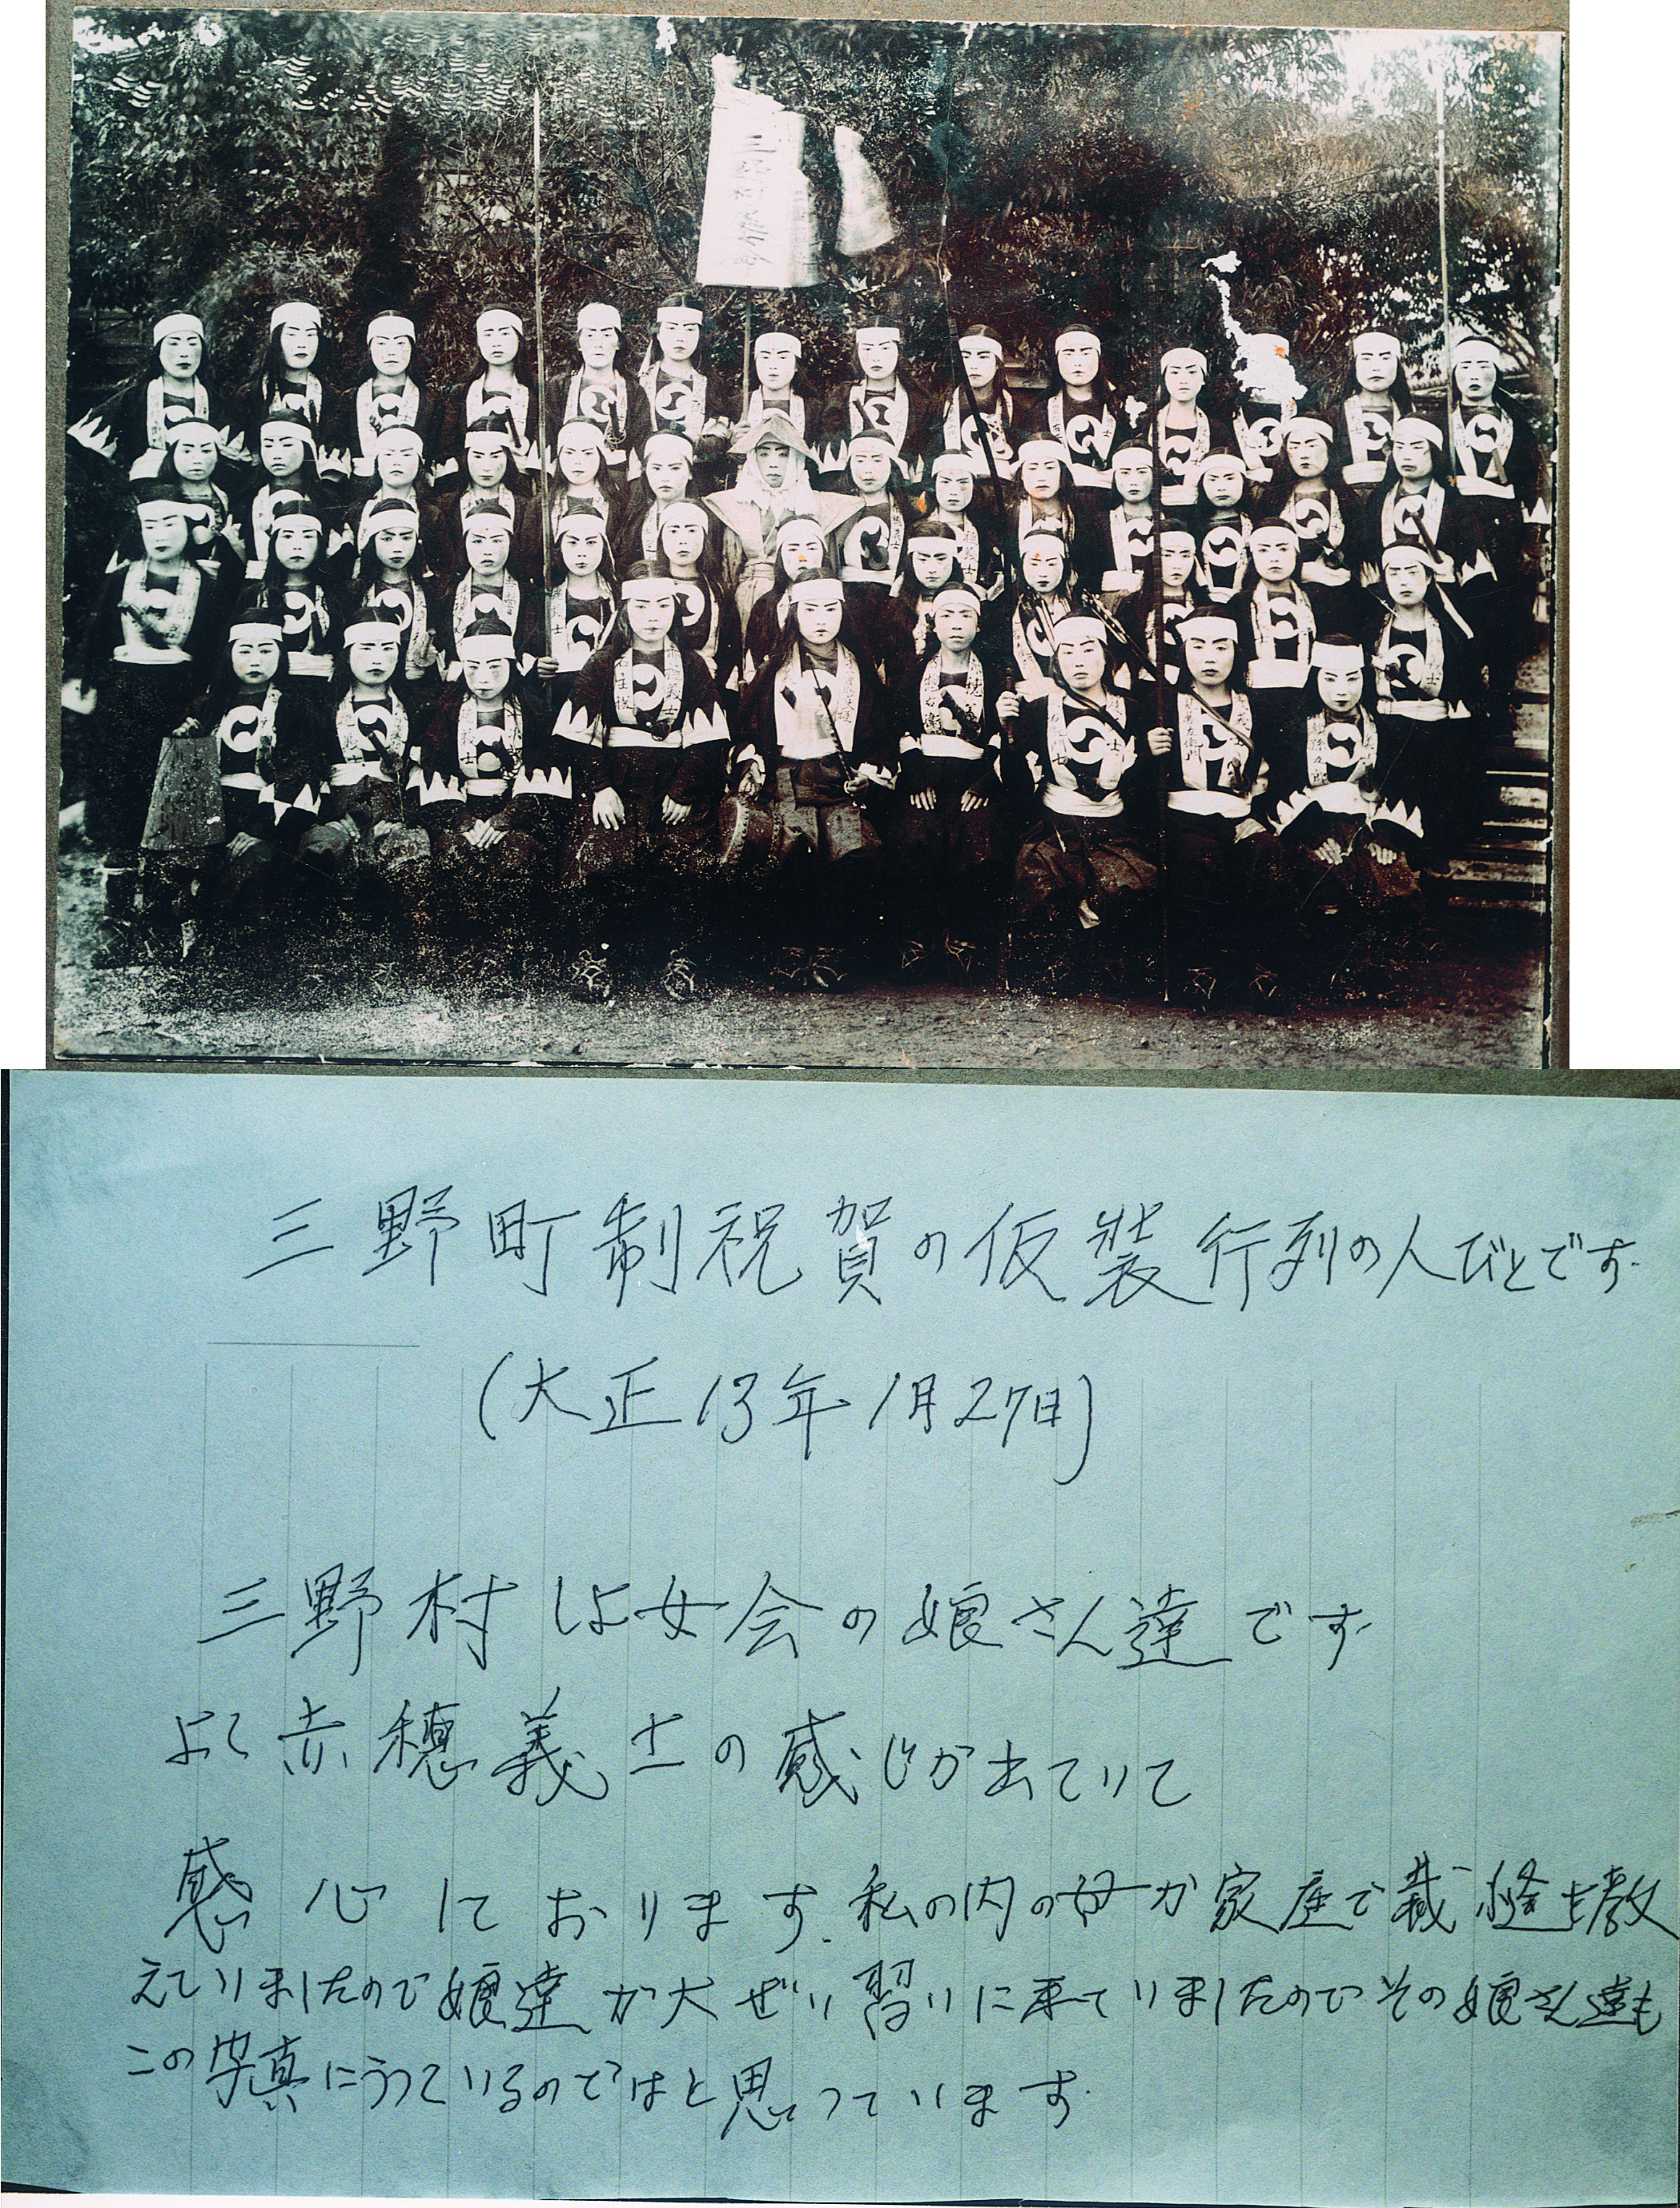 三野町制祝賀の仮装行列の人びとです.
(大正13年1月27日)
三野村しよ女会の娘さん達です.
よく赤穂義士の感じが出ていて
感心しております.私の内の母が家庭で裁縫を教
えていましたので娘達が大ぜい習いに来ていましたのでその娘さん達も
この写真にうつているのではと思つています.